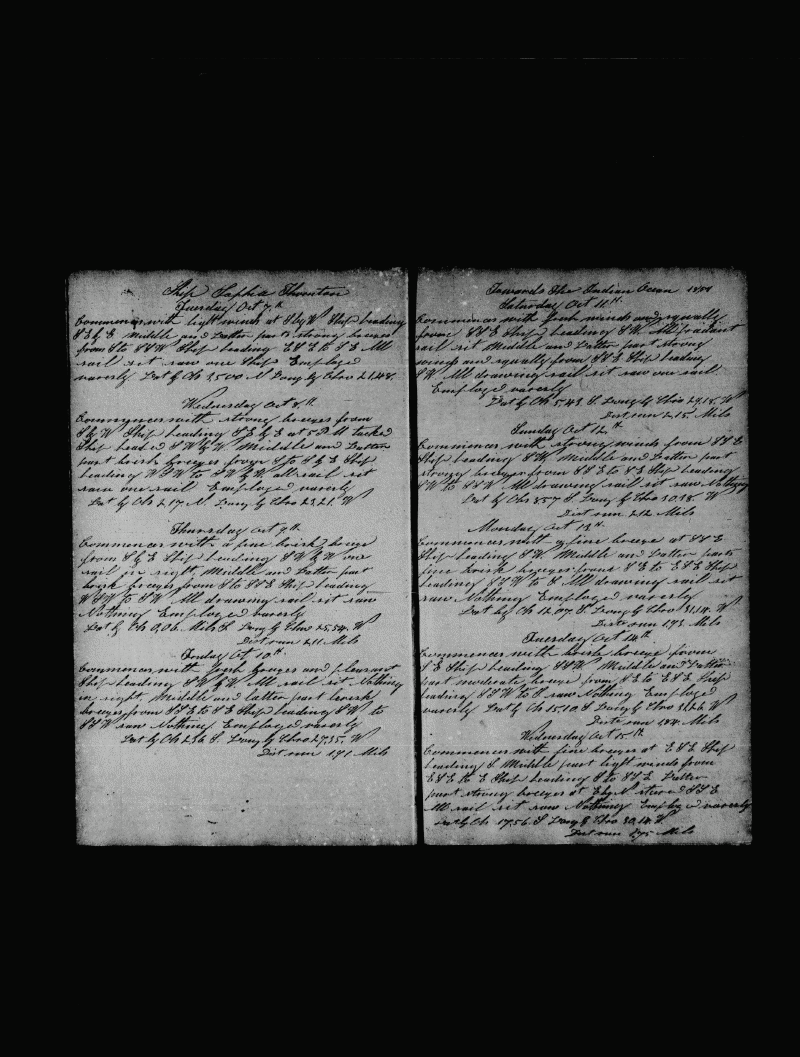 Ship Saphia Thornton
Tuesday Oct 7th
Commences with light winds at S by W Ship heading
S E by E Middle and Latter part strong breezes
from S to S S W Ship heading E S E to S E All
sail set saw one Ship Employed
vaverly Lat by Ob 3,50 N Long by Chro 21.48
Wednesday Oct 8th
Commences with strong breezes from
S by W Ship heading S E by E at 5 P M tacked
Ship headed S W by W Middle and Latter
part brisk breezes from S to S by E Ship
heading W S W to S W by W all sail set
saw one sail Employed vaverly
Lat by Ob 2.17 N. Long by Chro 23,21. W
Thursday Oct 9th
Commences with a fine brisk breeze
from S by E Ship heading S W by W one
sail in sight Middle and Latter part
brisk breezes from S to S S E Ship heading
W S W to S W All drawing sail set saw
Nothing Employed vaverly
Lat by Ob 0,06 Mils S Long by Chro 25,54. W
Dist run 211 Mils
Friday Oct 10th
Commences with fresh breezes and pleasant
Ship heading S W by W. All sail set Nothing
in sight Middle and latter part brisk
breezes from S S E to S E Ship heading S W to
S S W saw Nothing Employed vaverly
Lat by Ob 2.36 S. Long by Chro 27,35. W
Dist run 171 Mils
Towards The Indian Ocean
Saturday Oct 11th
Commences with fresh winds and squally
from S S E Ship heading S W All
sail set Middle and Latter part strong
winds and squally from S S E Ship heading
S W All drawing sail set saw one sail
Employed vaverly
Lat by Ob 5.43 S. Long by Chro 29,18. W
Dist run 215 Mils
Sunday Oct 12th
Commences with strong winds from S S E
Ship heading S W Middle and Latter part
strong breezes from S S E to S E Ship heading
S W to S S W All drawing sail set saw Nothing
Lat by Ob 8.57 S Long by Chro 30,38. W
Dist run 212 Mils
Monday Oct 13th
Commences with a fine breeze at S S E
Ship heading S W Middle and Latter parts
fine brisk breezes from S E to E S E Ship
heading S S W to S All drawing sail set
saw Nothing Employed vaverly
Lat by Ob 12,07 S. Long by Chro 31,14. W
Dist run 193 Mils
Tuesday Oct 14th
Commences with brisk breeze from
S E Ship heading S S W Middle and Latter
part moderate breeze from S E to E S E Ship
heading S S W to S saw Nothing Employed
vaverly Lat by Ob 15,10 S. Long by Chro 31,26. W
Dist run 184 Mils
Wednesday Oct 15th
Commences with fine breezes at E S E Ship
heading S Middle part light winds from
E S E to E Ship heading S to S S E Latter
part strong breezes at E by N steered S S E
All sail set saw Nothing Employed vaverly
Lat by Ob 17.56 S Long by Chro 30,14. W
Dist run 175 Mils